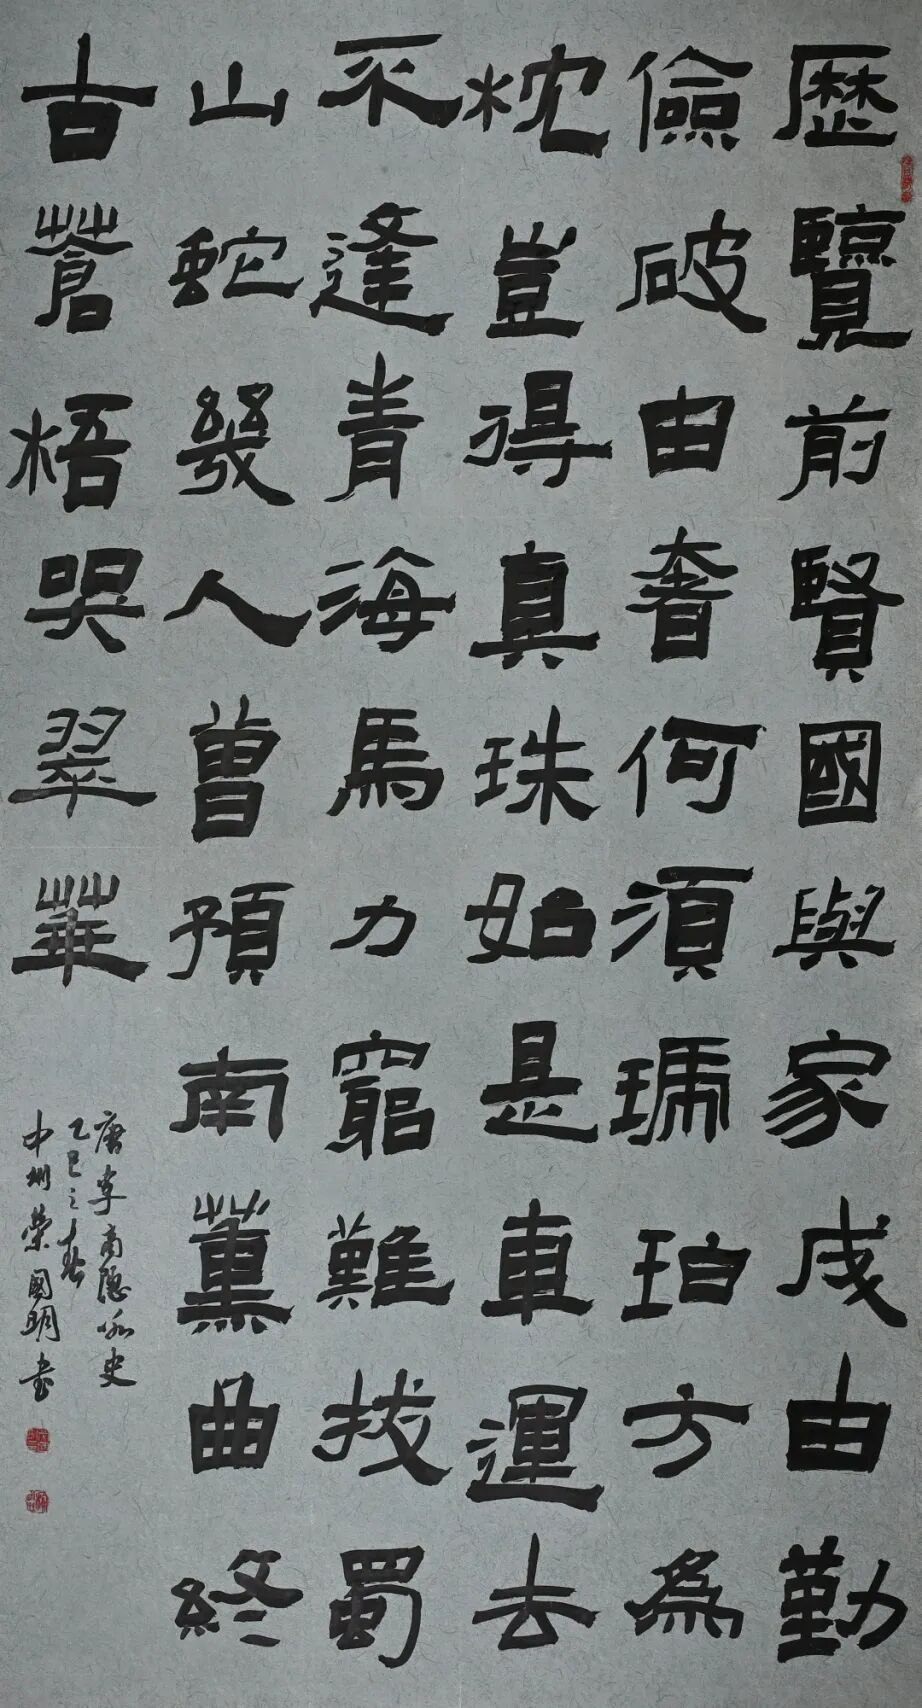 歷覽前賢國與家成由勤
儉破由奢何須琥珀方為
枕豈得真珠始是車運去
不逢青海馬力窮難拔蜀
山蛇幾人曾預南薰曲終
古蒼梧哭翠華
唐李商隱咏史
乙巳之春
中州榮國明書